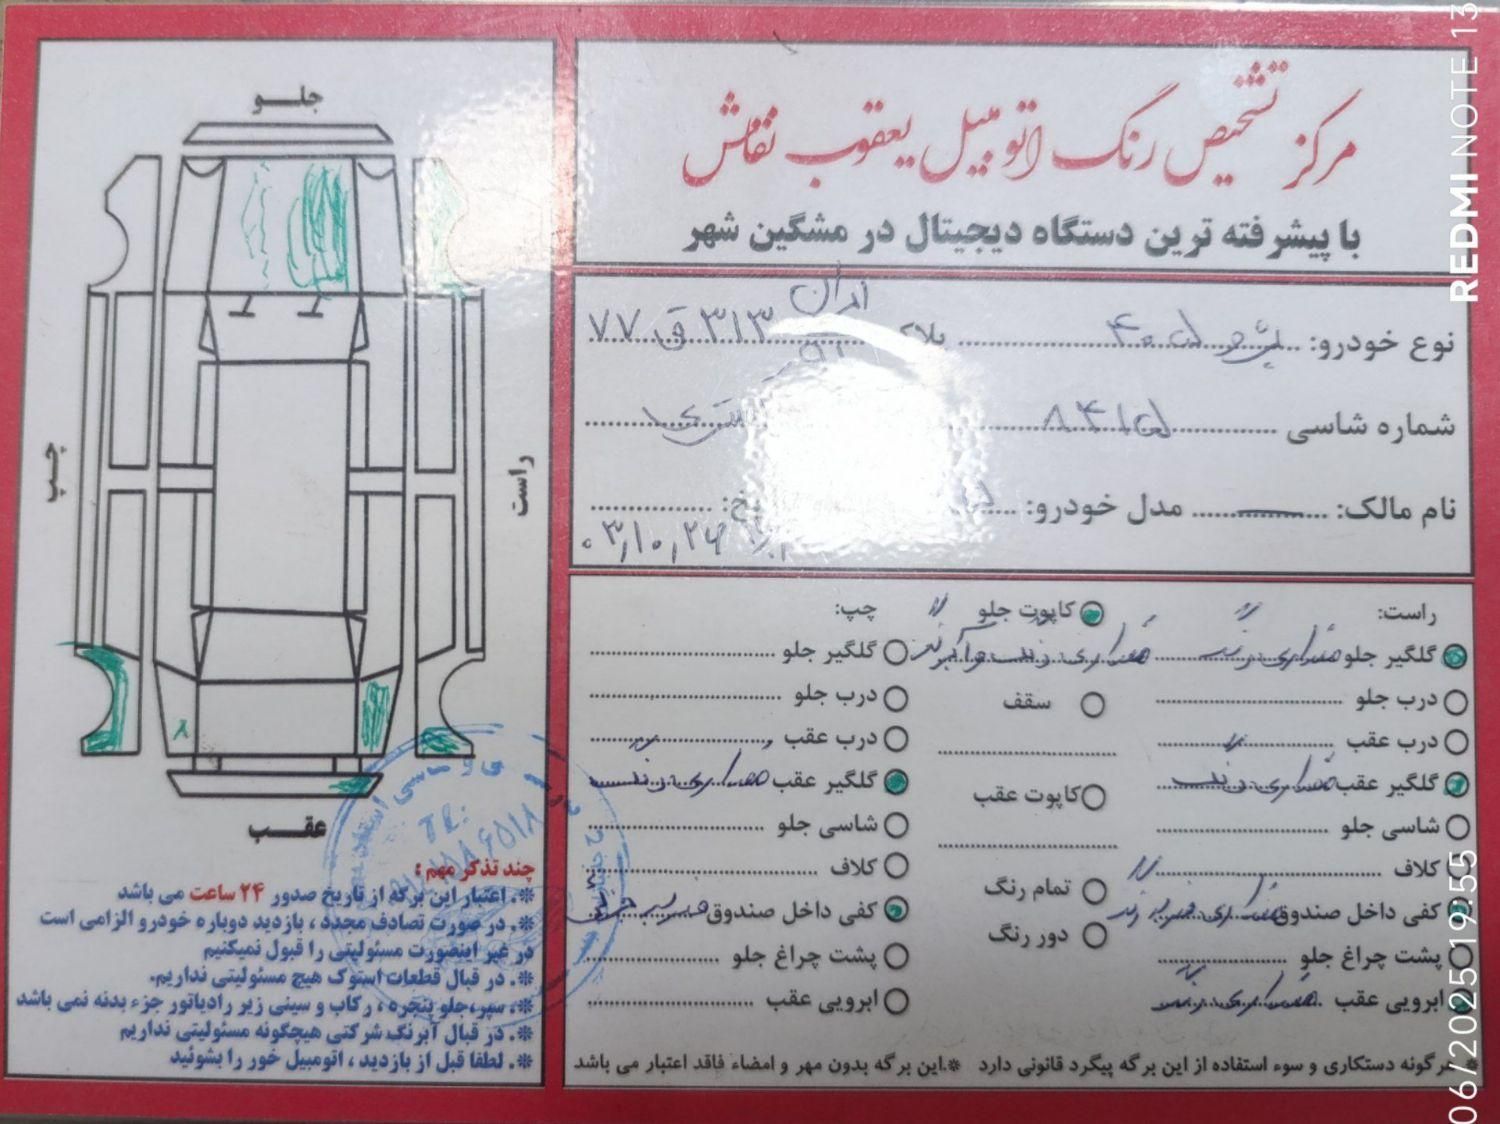 مرکز تشخیص رنگ اتومبیل یعقوب نقاش
با پیشرفته ترین دستگاه دیجیتال در مشگین شهر
نوع خودرو: پژو ۴۰۵ پلاک ۷۷ ق ۳۱۳ ایران ۹۱
شماره شاسی
نام مالک: مدل خودرو:
۰۳,۱۰,۲۶
راست:
گلگیر جلو مقداری رنگ
درب جلو
درب عقب
گلگیر عقب مقداری رنگ
شاسی جلو
کلاف
کفی داخل صندوق
پشت چراغ جلو
ابرویی عقب مقداری رنگ
کاپوت جلو
مقداری رنگ و آبرنگ
سقف
کاپوت عقب
تمام رنگ
دور رنگ
چپ:
گلگیر جلو
درب جلو
درب عقب
گلگیر عقب مقداری رنگ
شاسی جلو
کلاف
کفی داخل صندوق
پشت چراغ جلو
ابرویی عقب
هرگونه دستکاری و سوء استفاده از این برگه پیگرد قانونی دارد *.این برگه بدون مهر و امضاء فاقد اعتبار می باشد
جلو
چپ
راست
عقب
چند تذکر مهم :
*. اعتبار این برگه از تاریخ صدور ۲۴ ساعت می باشد
*. در صورت تصادف مجدد ، بازدید دوباره خودرو الزامی است
در غیر اینصورت مسئولیتی را قبول نمیکنیم
*. در قبال قطعات استوک هیچ مسئولیتی نداریم.
*. سپر،جلو پنجره ، رکاب و سینی زیر رادیاتور جزء بدنه نمی باشد
*. در قبال آبرنگ شرکتی هیچگونه مسئولیتی نداریم
*. لطفا قبل از بازدید ، اتومبیل خور را بشوئید
REDMI NOTE 13
06/2025 19:55